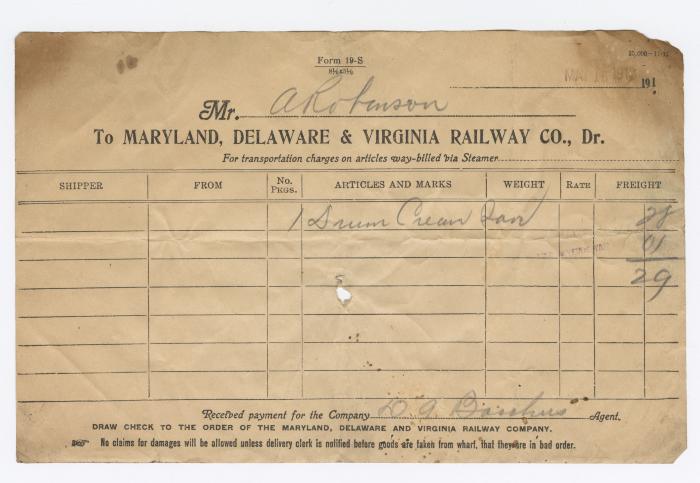 Form 19-S
8½x5½
191
Mr. A Robinson
To MARYLAND, DELAWARE & VIRGINIA RAILWAY CO., Dr.
For transportation charges on articles way-billed via Steamer
SHIPPER FROM No. PKGS. ARTICLES AND MARKS WEIGHT RATE FREIGHT
1 Drum Cream 28
01
29
Received payment for the Company Agent.
DRAW CHECK TO THE ORDER OF THE MARYLAND, DELAWARE AND VIRGINIA RAILWAY COMPANY.
No claims for damages will be allowed unless delivery clerk is notified before goods are taken from wharf, that they are in bad order.